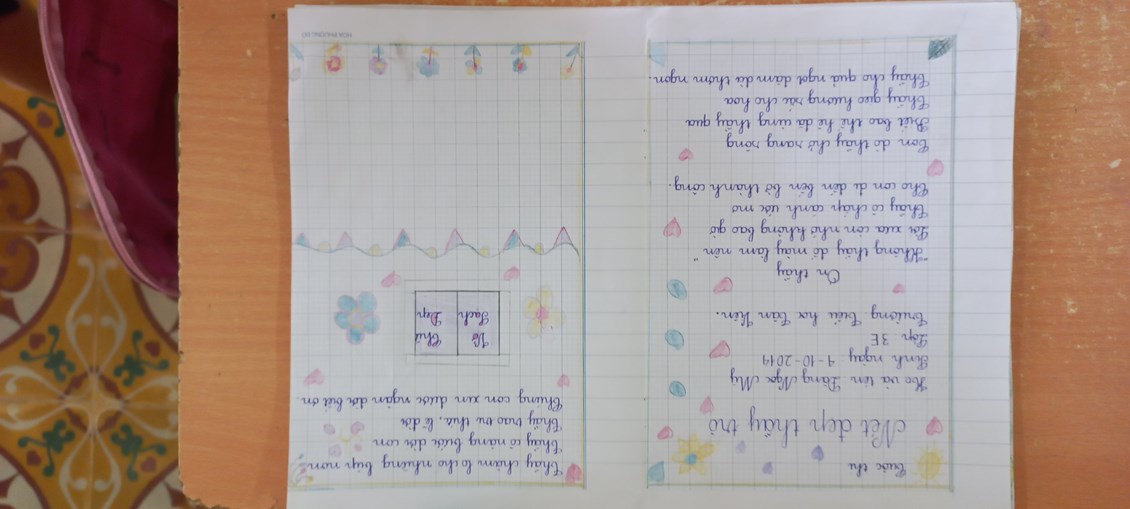 Cuộc thi
Nét đẹp thầy trò
Họ và tên Đặng Ngọc My
Sinh ngày 4-10-2014
Lớp 3E
Trường Tiểu học Tân Tiến.
Ơn thầy
"Không thầy đố mày làm nên"
Lời xưa còn nhớ không bao giờ
Thầy cô chắp cánh ước mơ
Cho con đi đến bến bờ thành công.
Con đò thầy chở sang sông
Biết bao thế hệ đã cùng thầy qua
Thầy gieo hương sắc cho hoa
Thầy cho quả ngọt đậm đà thơm ngon.
Thầy chăm lo cho những búp non
Thầy cô nâng bước đời con
Thầy trao tri thức, lẽ đời
Chúng con xin được ngàn đời biết ơn
Vở Chữ
Sạch Đẹp
HOA PHUONG